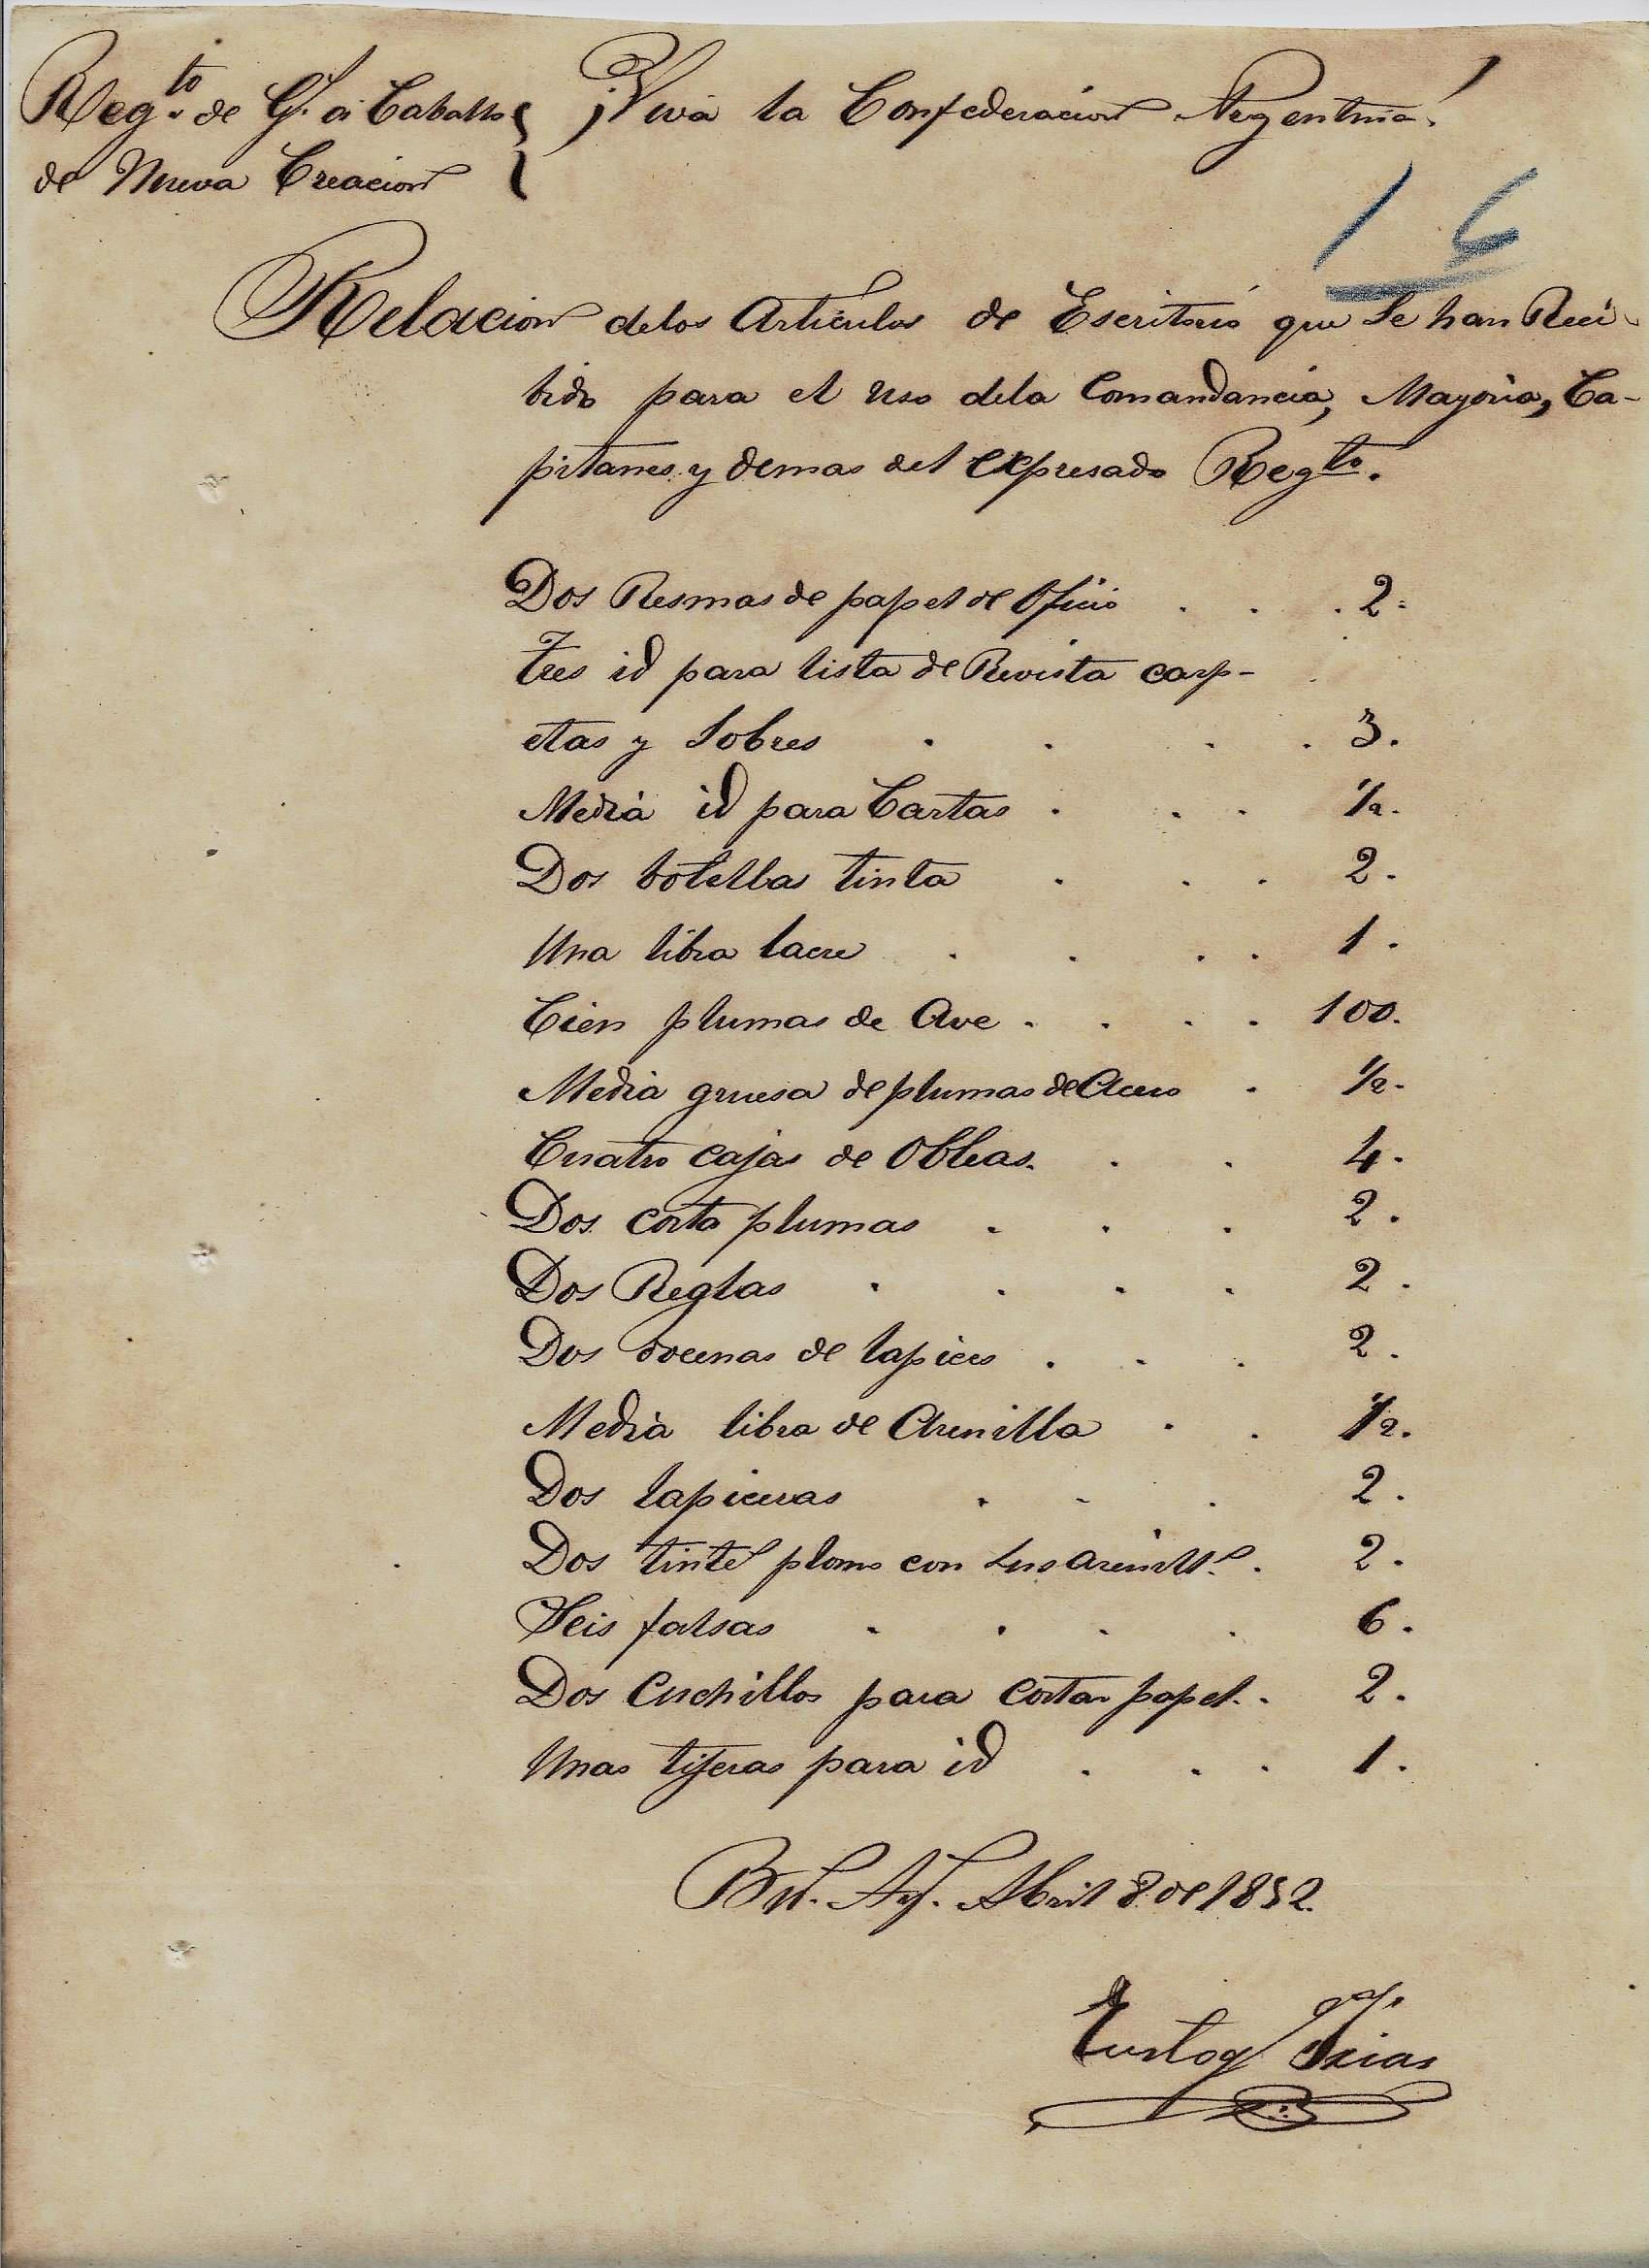 Reg.to de G.s a Caballo
de Nueva Creacion
¡Viva la Confederacion Argentina!
16
Relacion delos Articulos de Escritorio que Se han Reci-
bido para el uso dela Comandancia, Mayoria, Ca-
pitanes y demas del expresado Reg.to
Dos Resmas de papel de Oficio . . . 2.
Tres id para lista de Revista carp-
etas y Sobres . . . . 3.
Media id para Cartas . . . 1/2.
Dos botellas tinta . . . 2.
Una libra lacre . . . . 1.
Cien plumas de Ave . . . . 100.
Media gruesa de plumas de Acero . 1/2.
Cuatro cajas de Obleas. . . 4.
Dos corta plumas . . . 2.
Dos Reglas . . . . 2.
Dos docenas de lapices . . . 2.
Media libra de Arenilla . . 1/2.
Dos lapiceras . . . 2.
Dos tint.s plomo con sus arenill.s . 2.
Seis falsas . . . . 6.
Dos Cuchillos para cortar papel. . 2.
Unas tijeras para id . . . 1.
Bs. As. Abril 8 de 1852.
Eustoq.o Frias